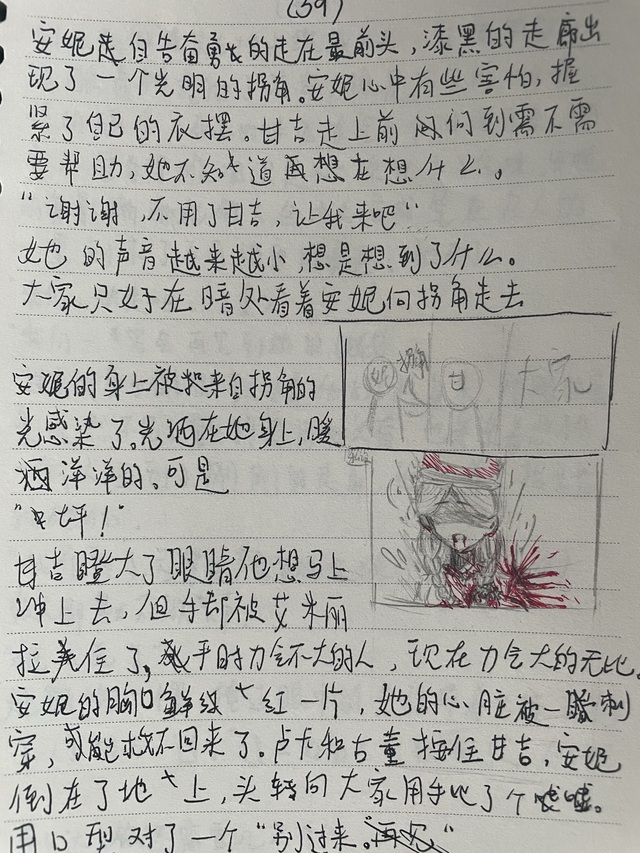 (39)
安妮走自告奋勇的走在最前头，漆黑的走廊出
现了一个光明的拐角。安妮心中有些害怕，握
紧了自己的衣摆。甘吉走上前问到需不需
要帮助，她不知道再想在想什么。
“谢谢，不用了甘吉，让我来吧”
她的声音越来越小，想是想到了什么。
大家只好在暗处看着安妮向拐角走去
妮 拐角 甘 大家
安妮的身上被来自拐角的
光感染了。光洒在她身上，暖
洒洋洋的。可是
“砰！”
甘吉瞪大了眼睛他想马上
冲上去，但手却被艾米丽
拉住了，平时力气不大的人，现在力气大的无比。
安妮的胸口鲜红一片，她的心脏被一瞬刺
穿，或能求救不回来了。卢卡和古董按住甘吉，安妮
倒在了地上，头转向大家用手比了个嘘嘘。
用口型对了一个“别过来。”